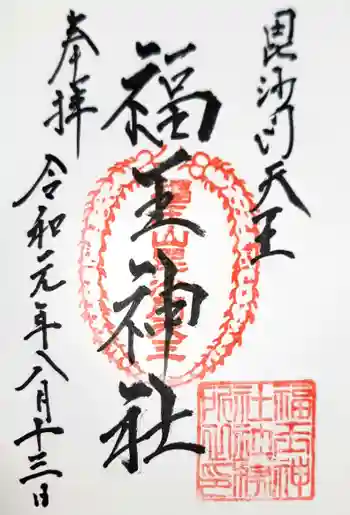 毘沙門天王
福王神社
奉拝
令和元年八月十三日
福王神
社社務
所之印